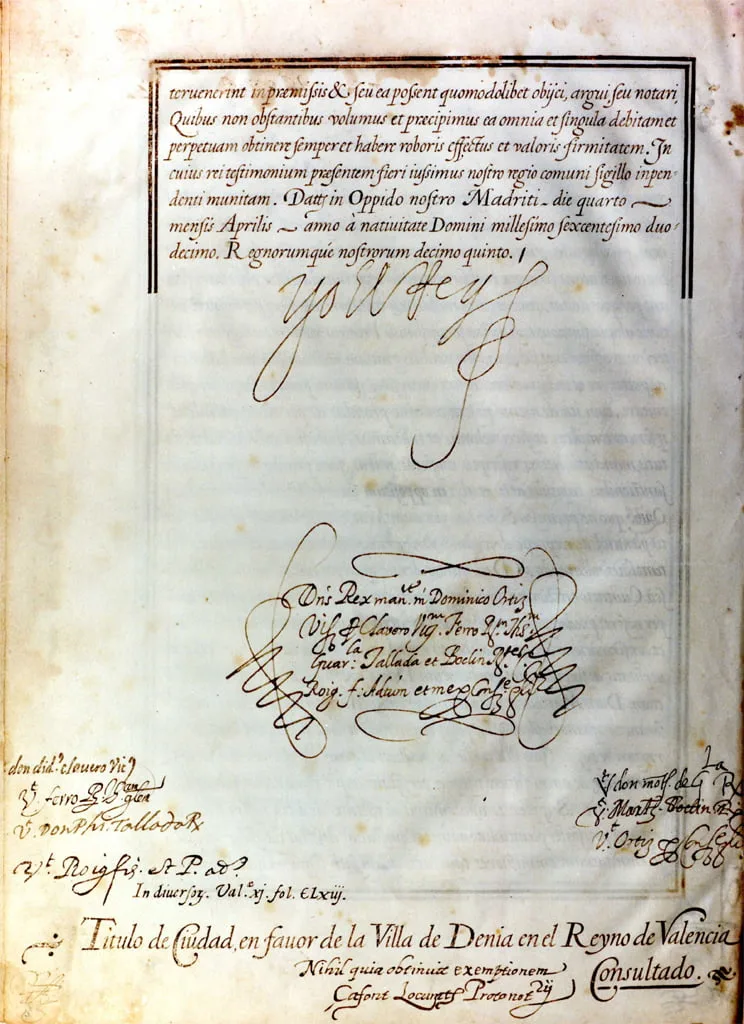 teruenerint in præmissis & seu ea possent quomodolibet obijci, argui seu notari,
Quibus non obstantibus volumus et præcipimus ea omnia et singula debitam et
perpetuam obtinere semper et habere roboris effectus et valoris firmitatem. In
cuius rei testimonium præsentem fieri iussimus nostro regio comuni sigillo inpen-
denti munitam. Datt̃ in Oppido nostro Madriti die quarto
mensis Aprilis anno à natiuitate Domini millesimo sexcentesimo duo-
decimo. Regnorumqué nostrorum decimo quinto.
yo el Rey
Dns Rex man. m Dominico Ortiz
Vis. Clavero Vig. Ferro
Guar: Tallada et Boclin
Roig. f. Aduon et me
don did.º clavero Vicº
Vt. ferro R.
Vt. Don Phi. Tallada R
Vt. Roig fis. et P. adº
Vt. don mᵒˢ. de G
Vt. Martz. Boclin R
Vt. Ortiz
In diuersoȝ. Val.ᵉ xj. fol. CLxiij.
Titulo de Ciudad, en fauor de la Villa de Denia en el Reyno de Valencia
Consultado.
Nihil quia obtinuit exemptionem
Protonot